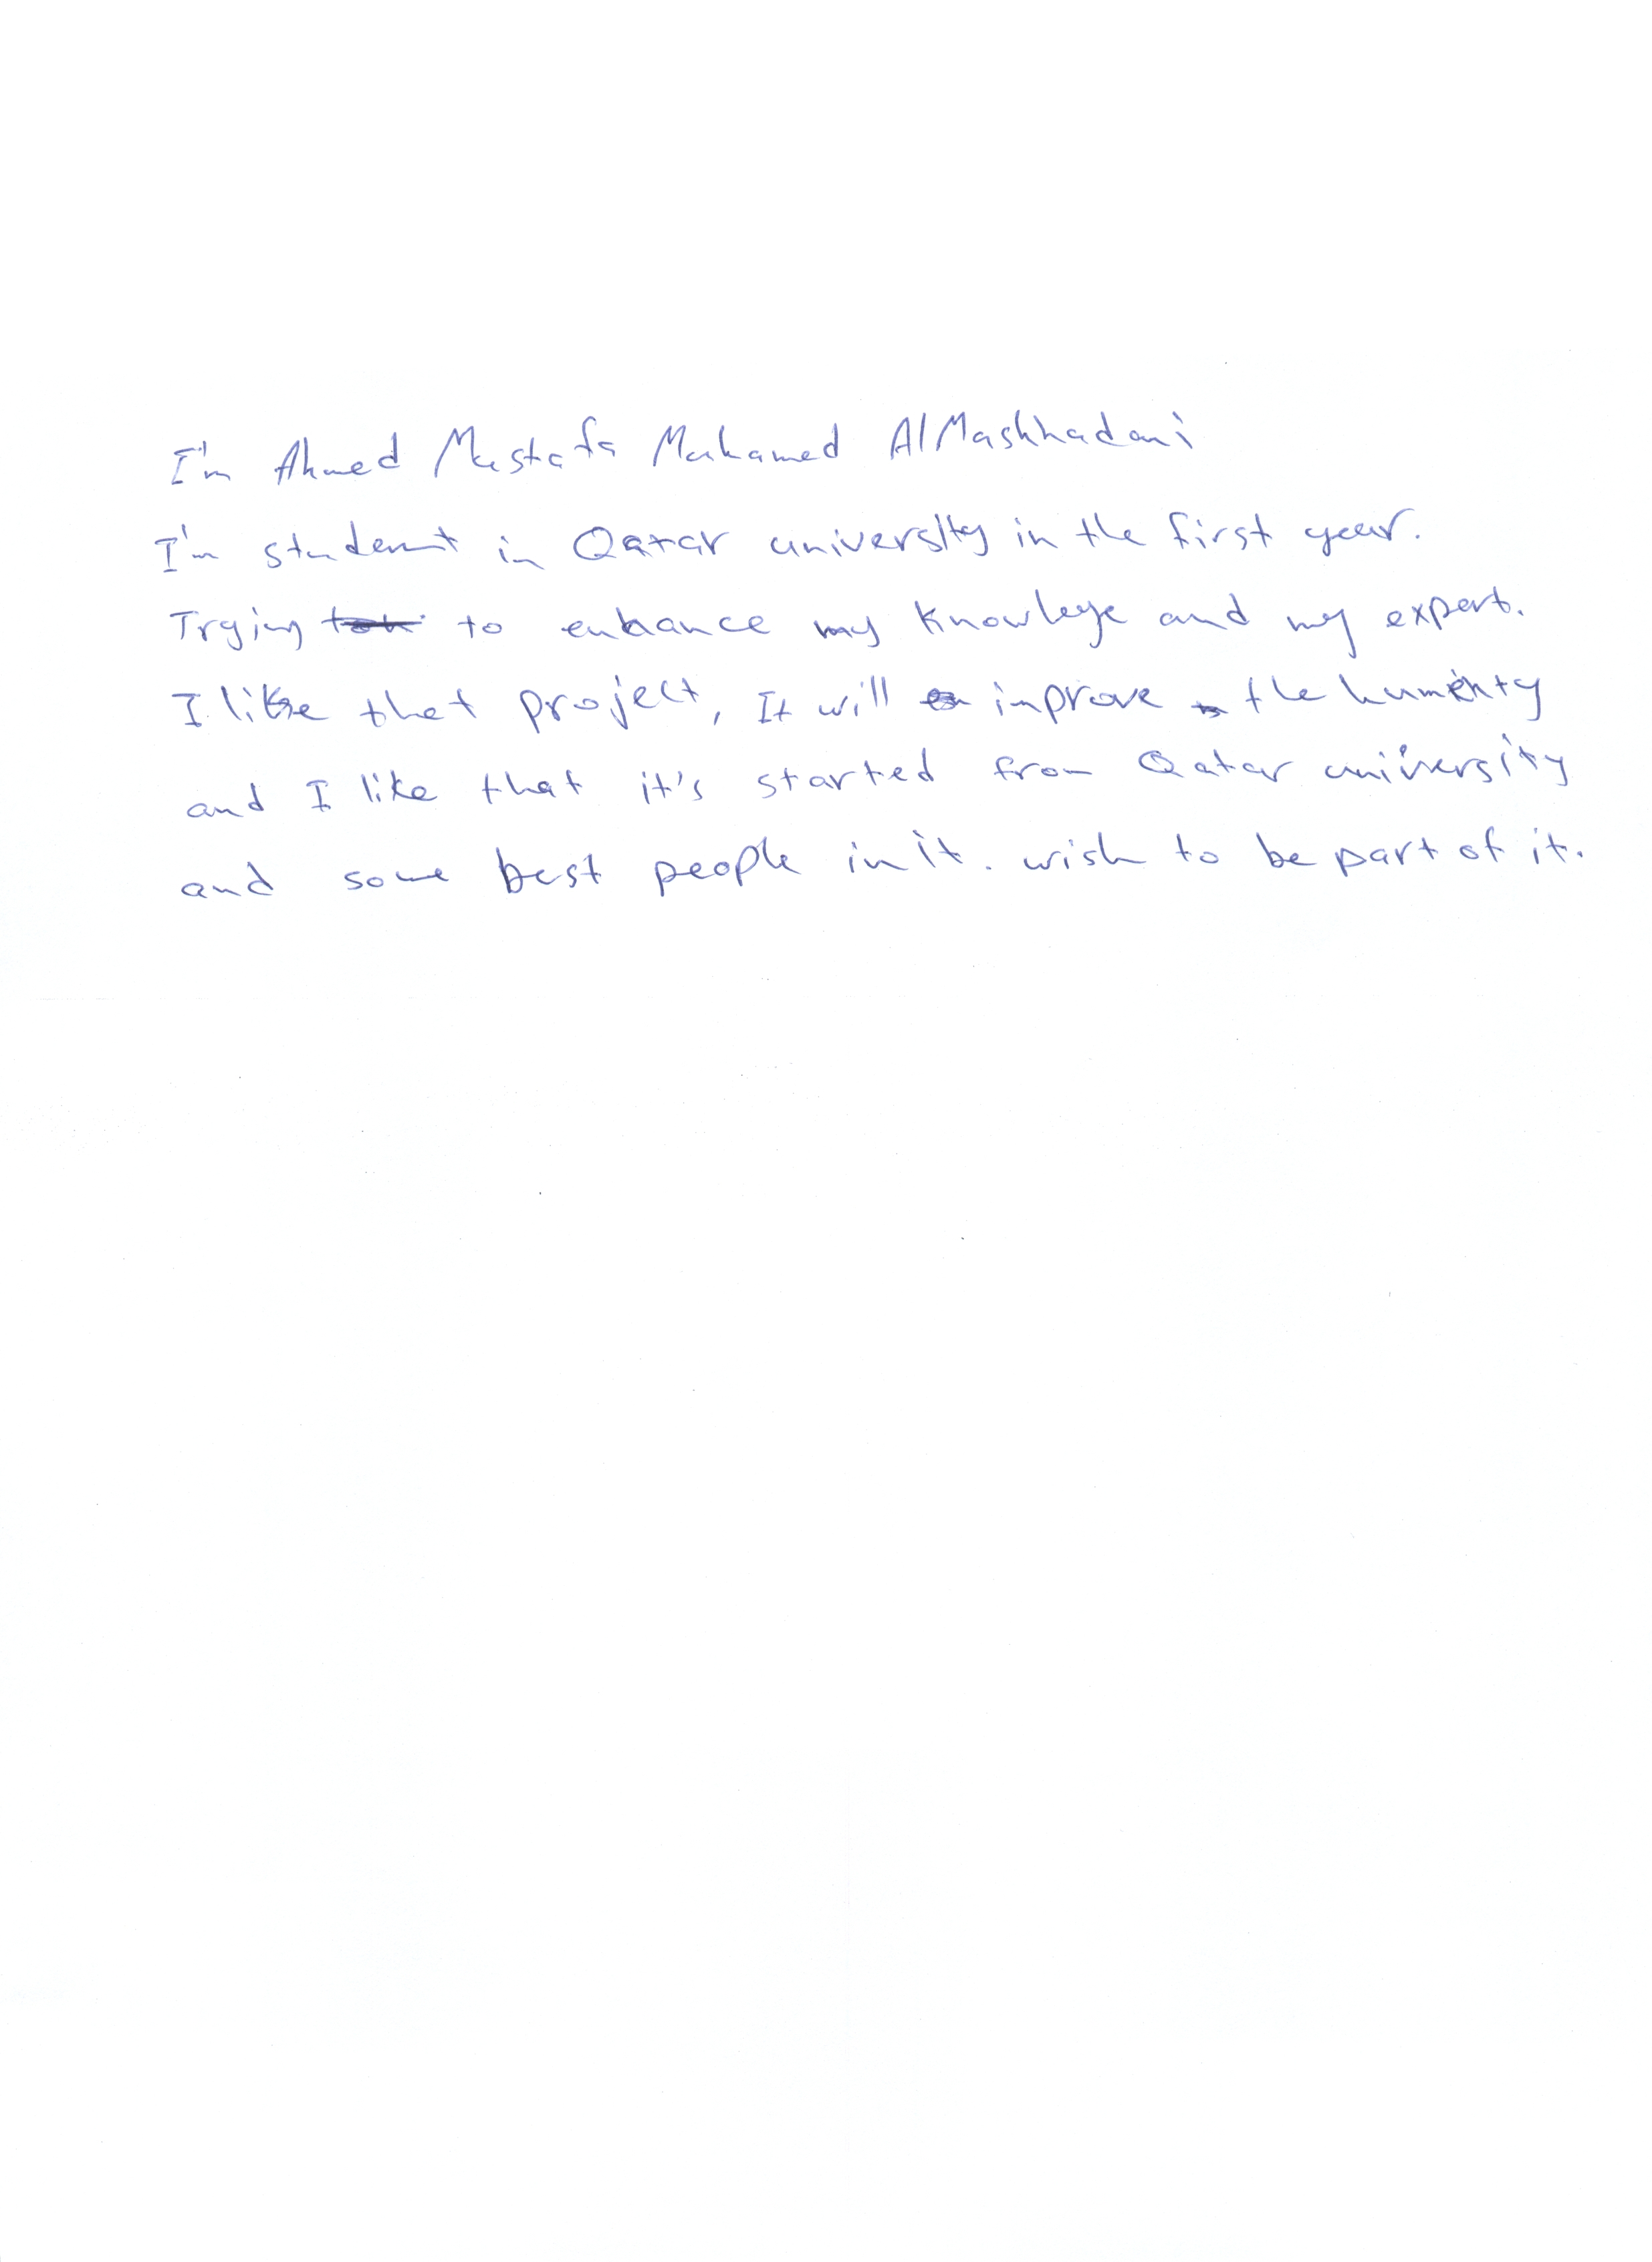 I'm Ahmed Mustafa Muhamed AlMashhadani
I'm student in Qatar university in the first year.
Trying to enhance my knowlege and my expert.
I like that project, It will improve the humenty
and I like that it's started from Qatar university
and some best people in it. wish to be part of it.